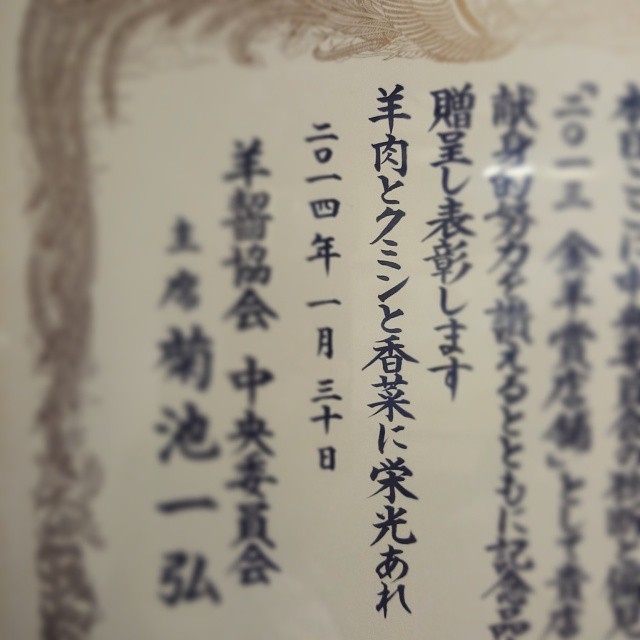 本日ここに中央委員会の
「二〇一三 金羊賞店舗」として貴店
献身的努力を讃えるとともに記念品
贈呈し表彰します
羊肉とクミンと香菜に栄光あれ
二〇一四年 一月 三十日
羊齧協会 中央委員会
主席 菊池一弘